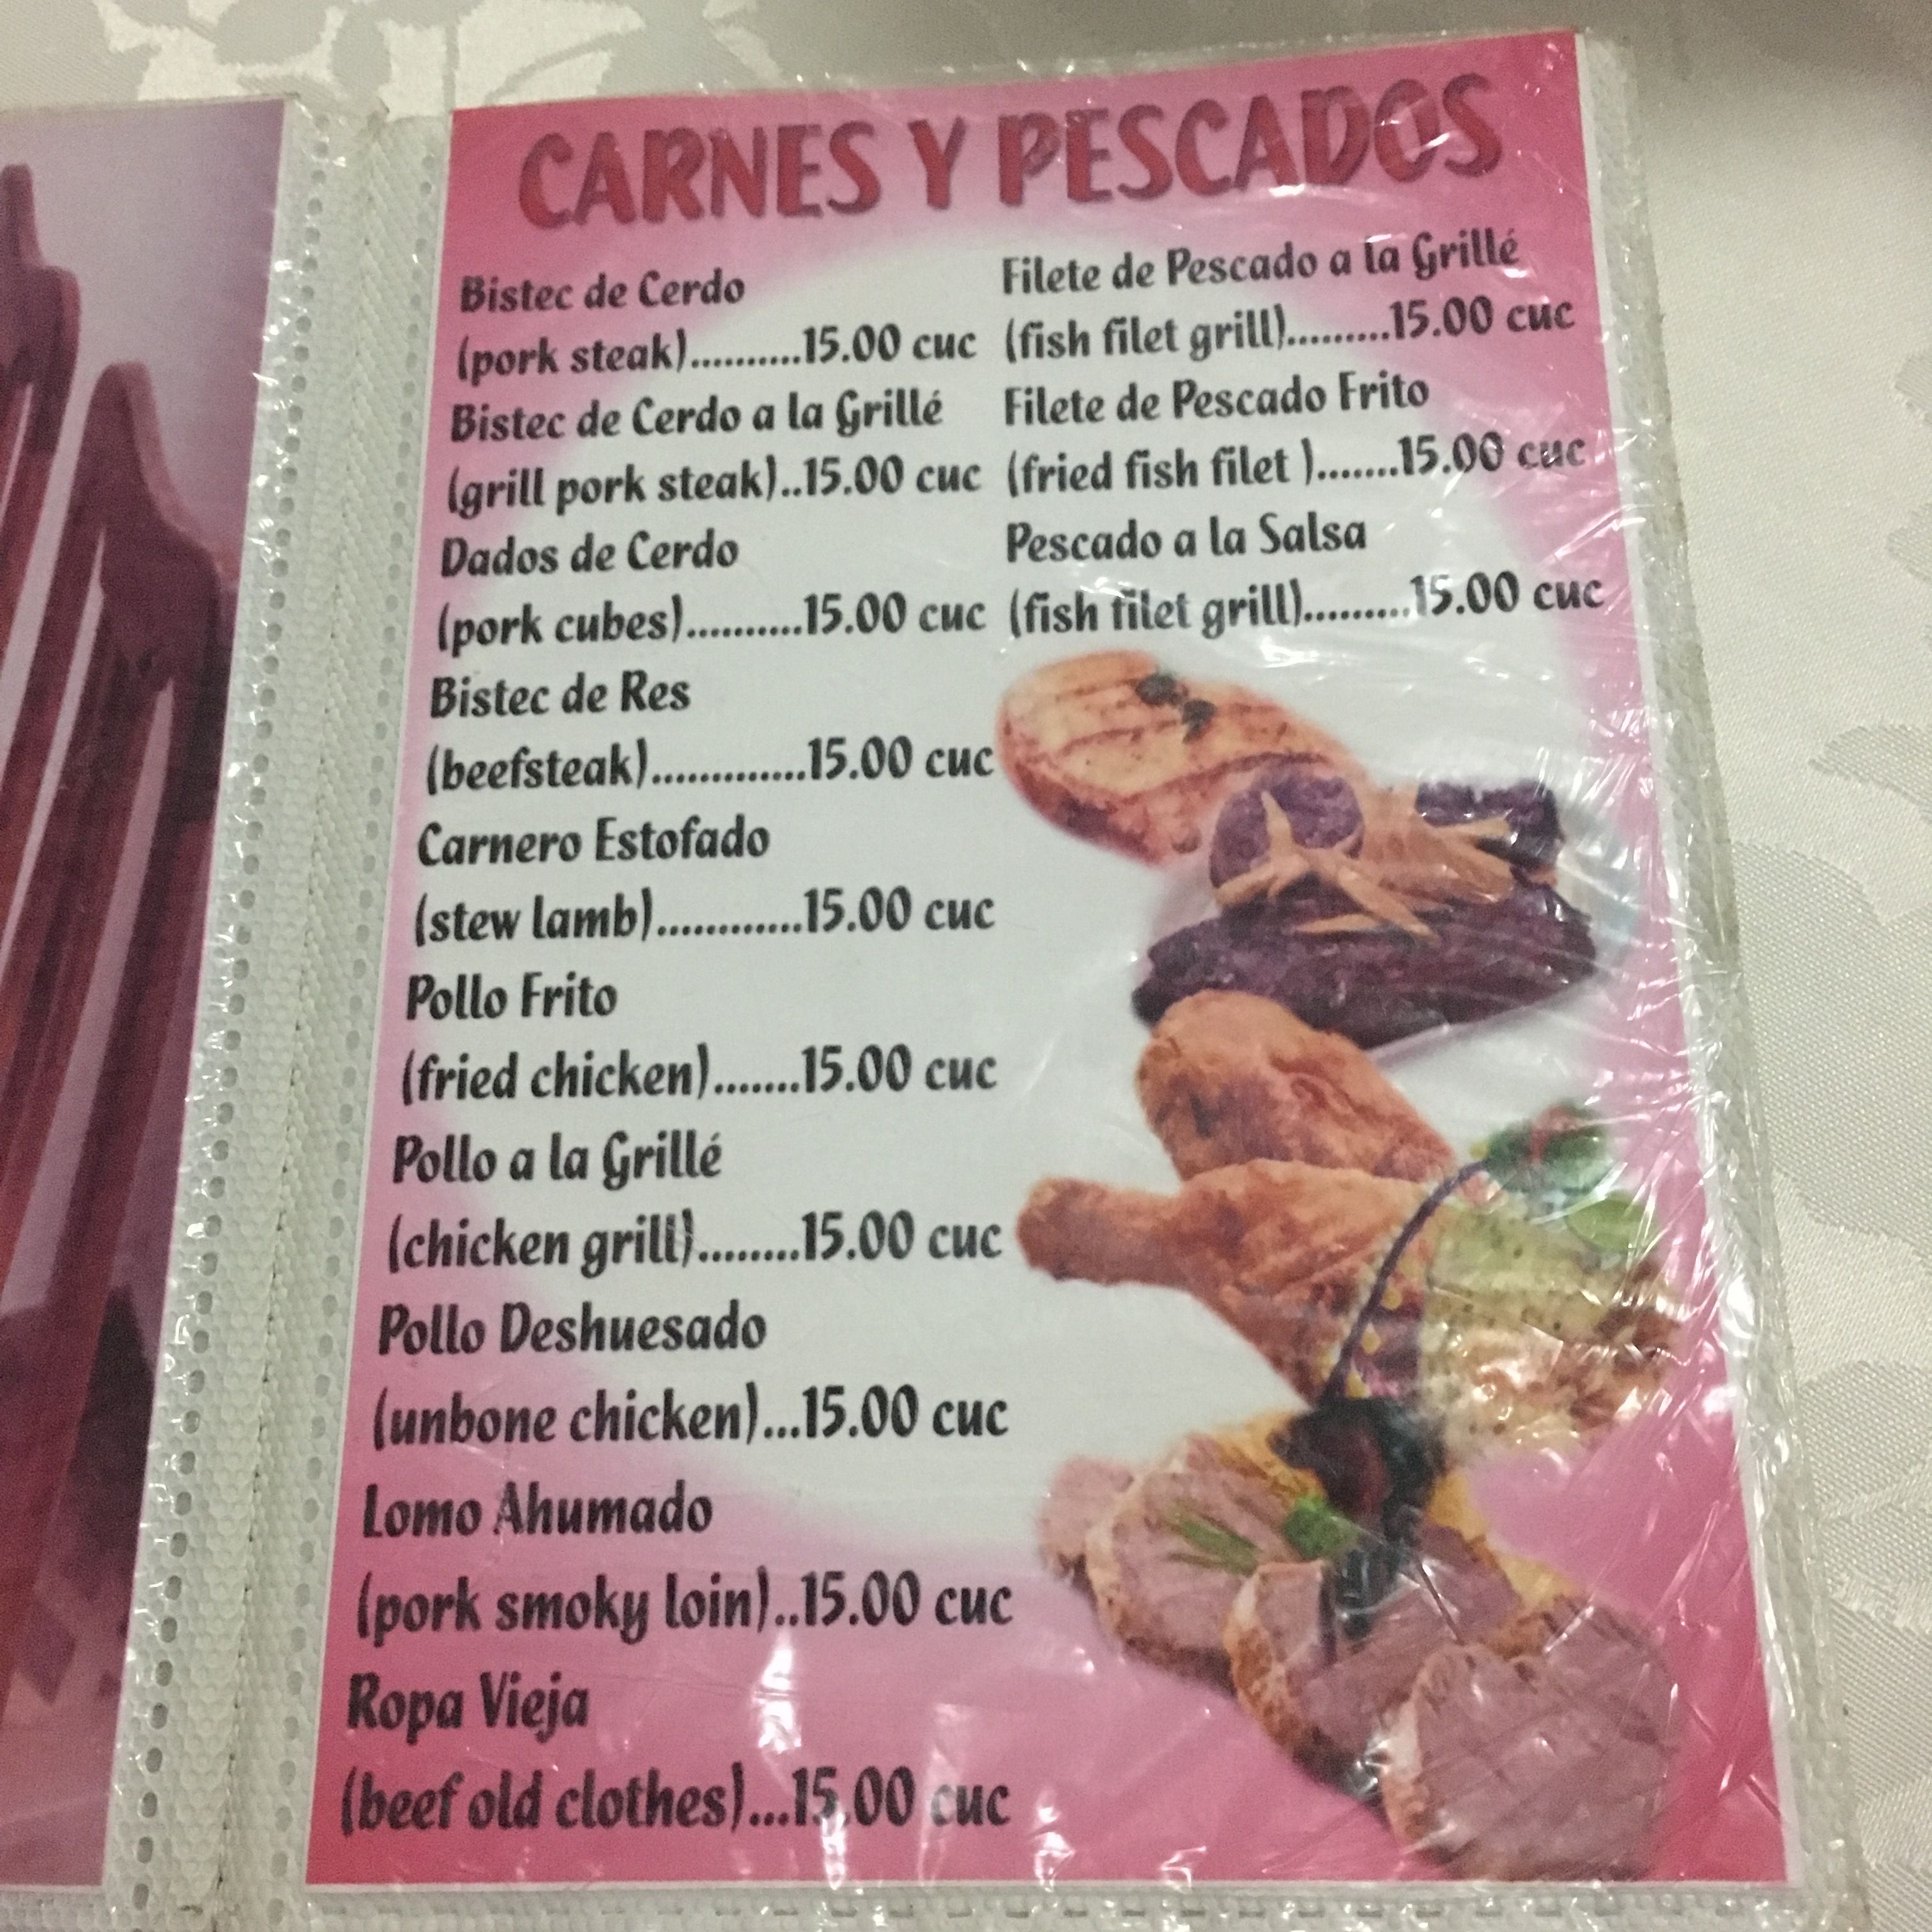 CARNES Y PESCADOS
Bistec de Cerdo
(pork steak)..........15.00 cuc
Bistec de Cerdo a la Grillé
(grill pork steak)..15.00 cuc
Dados de Cerdo
(pork cubes)..........15.00 cuc
Bistec de Res
(beefsteak).............15.00 cuc
Carnero Estofado
(stew lamb)............15.00 cuc
Pollo Frito
(fried chicken).......15.00 cuc
Pollo a la Grillé
(chicken grill).........15.00 cuc
Pollo Deshuesado
(unbone chicken)...15.00 cuc
Lomo Ahumado
(pork smoky loin)..15.00 cuc
Ropa Vieja
(beef old clothes)...15.00 cuc
Filete de Pescado a la Grillé
(fish filet grill).........15.00 cuc
Filete de Pescado Frito
(fried fish filet ).......15.00 cuc
Pescado a la Salsa
(fish filet grill).........15.00 cuc